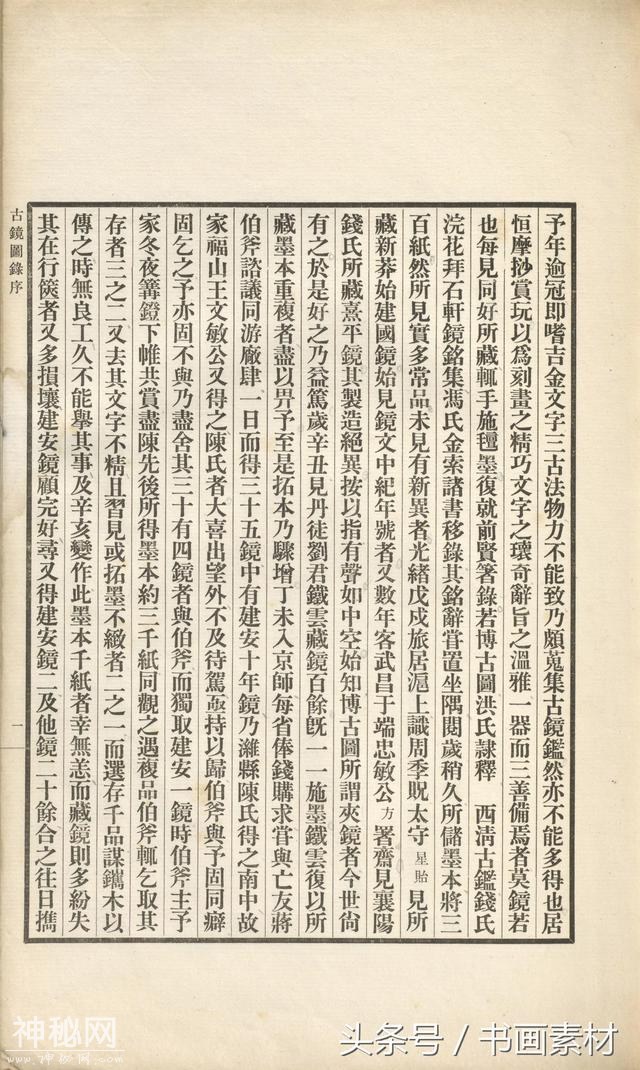 予年逾冠即嗜吉金文字三古法物力不能致乃頗蒐集古鏡鑑然亦不能多得也居
恒摩挱賞玩以爲刻畫之精巧文字之瓌奇辭旨之溫雅一器而三善備焉者莫鏡若
也每見同好所藏輒手施氊墨復就前賢箸錄若博古圖洪氏隸釋　西淸古鑑錢氏
浣花拜石軒鏡銘集馮氏金索諸書移錄其銘辭甞置坐隅閱歲稍久所儲墨本將三
百紙然所見實多常品未見有新異者光緒戊戌旅居滬上識周季貺太守星詒見所
藏新莽始建國鏡始見鏡文中紀年號者又數年客武昌于端忠敏公方署齋見襄陽
錢氏所藏熹平鏡其製造絕異按以指有聲如中空始知博古圖所謂夾鏡者今世尙
有之於是好之乃益篤歲辛丑見丹徒劉君鐵雲藏鏡百餘旣一一施墨鐵雲復以所
藏墨本重複者盡以畀予至是拓本乃驟增丁未入京師每省俸錢購求甞與亡友蔣
伯斧諮議同游廠肆一日而得三十五鏡中有建安十年鏡乃濰縣陳氏得之南中故
家福山王文敏公又得之陳氏者大喜出望外不及待駕亟持以歸伯斧與予固同癖
固乞之予亦固不與乃盡舍其三十有四鏡者與伯斧而獨取建安一鏡時伯斧主予
家冬夜篝鐙下帷共賞盡陳先後所得墨本約三千紙同觀之遇複品伯斧輒乞取其
存者三之二又去其文字不精且習見或拓墨不緻者二之一而選存千品謀鐫木以
傳之時無良工久不能舉其事及辛亥變作此墨本千紙者幸無恙而藏鏡則多紛失
其在行篋者又多損壞建安鏡顧完好尋又得建安鏡二及他鏡二十餘合之往日擕
古鏡圖錄序
一
神秘网
头条号 / 书画素材